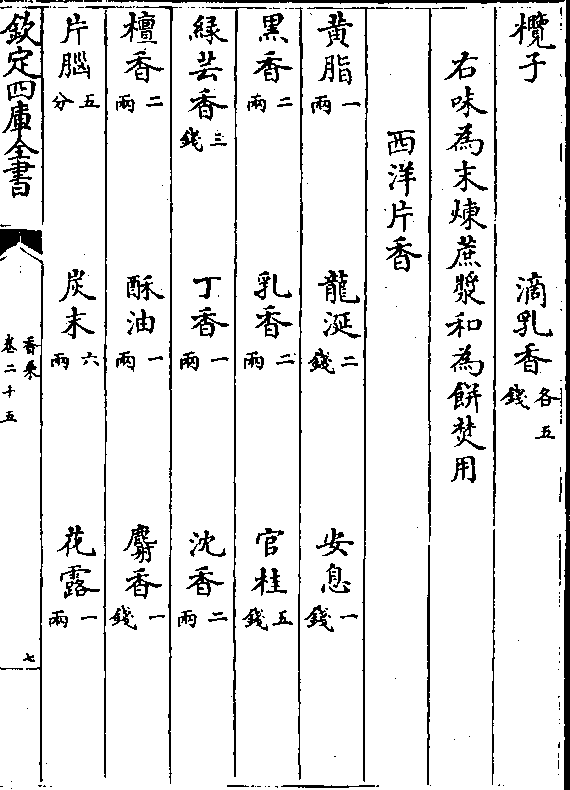 欖子　滴乳香各五錢
右味為末煉蔗漿和為餅焚用
西洋片香
黄脂一兩　龍涎二錢　安息一錢
黑香二兩　乳香二兩　官桂五錢
緑芸香三錢　丁香一兩　沈香二兩
檀香二兩　酥油一兩　麝香一錢
片腦五分　炭末六兩　花露一兩
欽定四庫全書
香乘
卷二十五
七